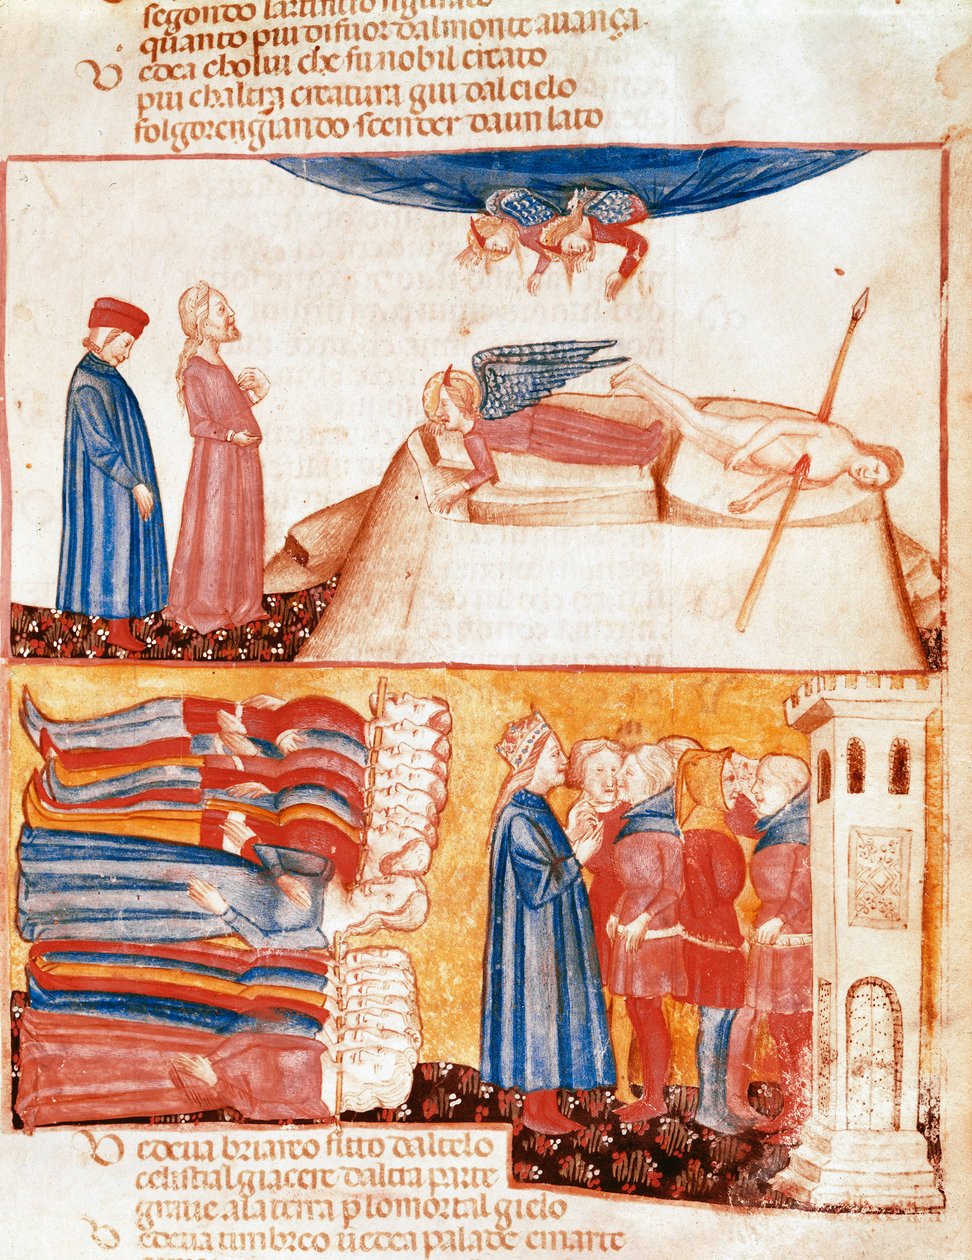 segondo lartificio figurato
quanto piu difuor dal monte auança
Vedea cholui che fu nobil criato
piu chaltra criatura giu dal cielo
folgorengiando scender daun lato
Vedeua briareo fitto dal telo
celestial giacere daltra parte
graue ala terra p lo mortal gielo
Vedeua timbreo uedea palade e marte